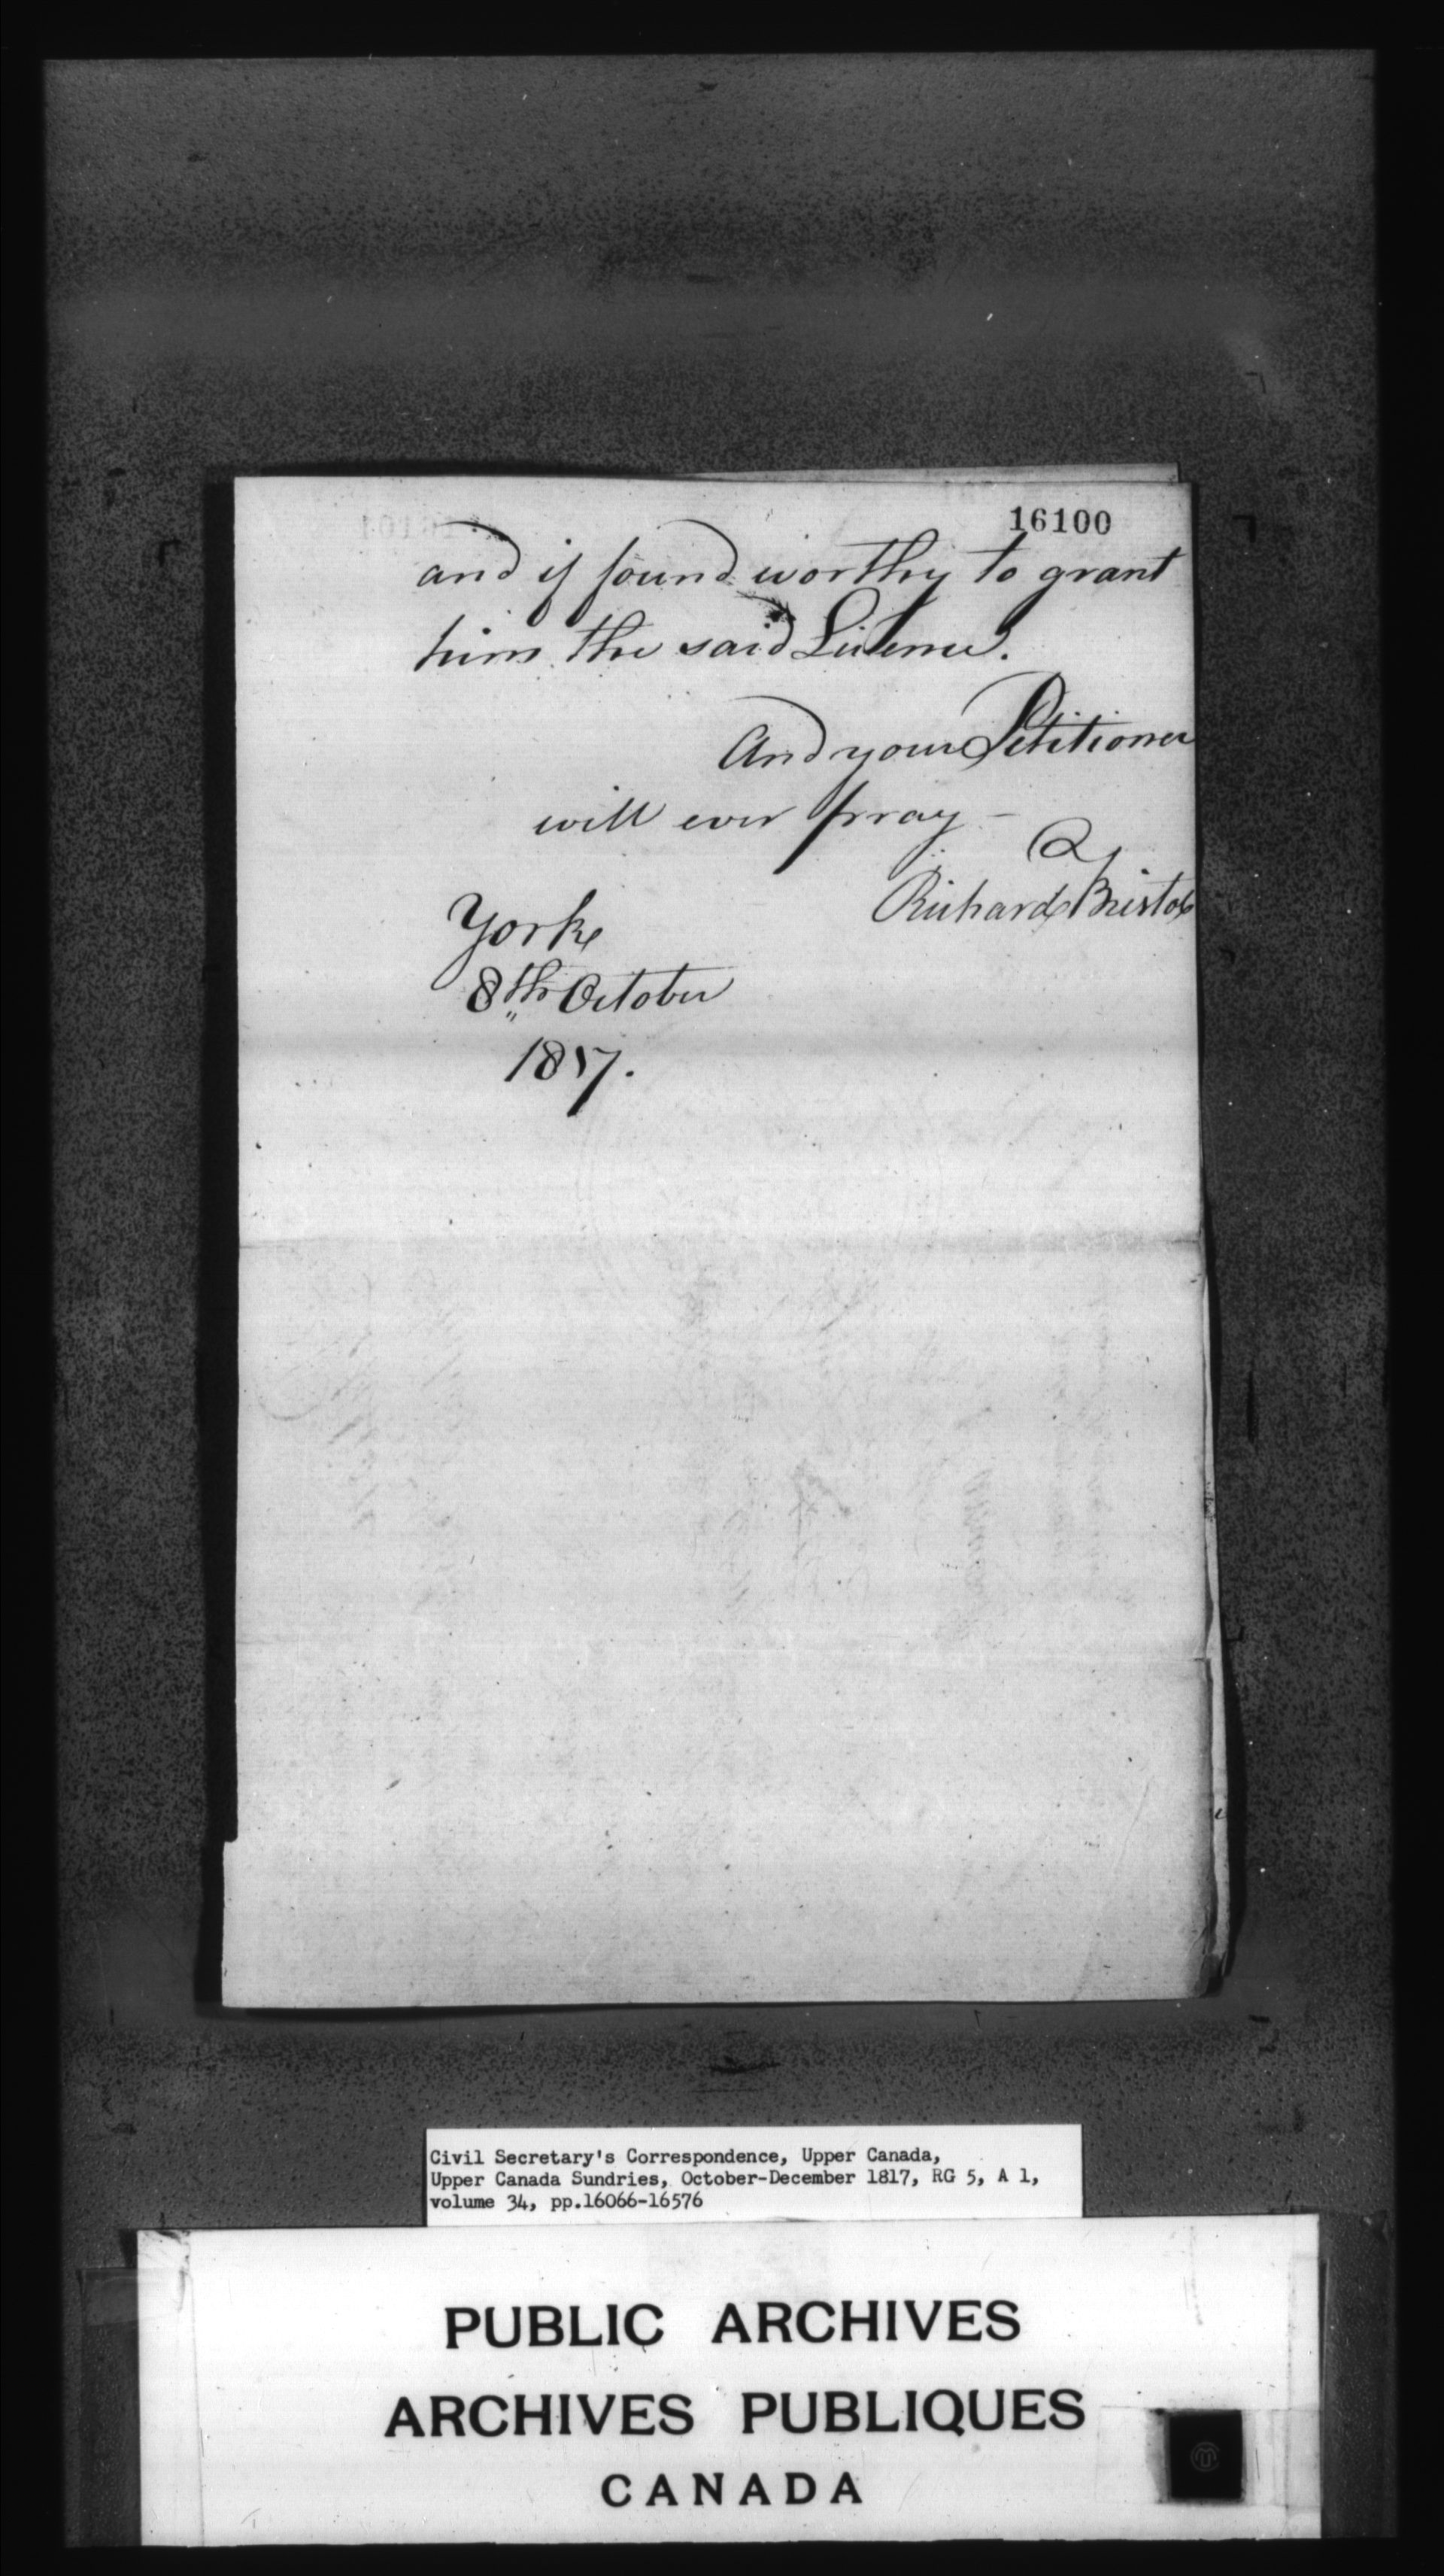 16100
and if found worthy to grant
him the said License.
And your Petitioner
will ever pray –
Richard Bristol
York
8th October
1817.
Civil Secretary's Correspondence, Upper Canada,
Upper Canada Sundries, October-December 1817, RG 5, A 1,
volume 34, pp.16066-16576
PUBLIC ARCHIVES
ARCHIVES PUBLIQUES
CANADA